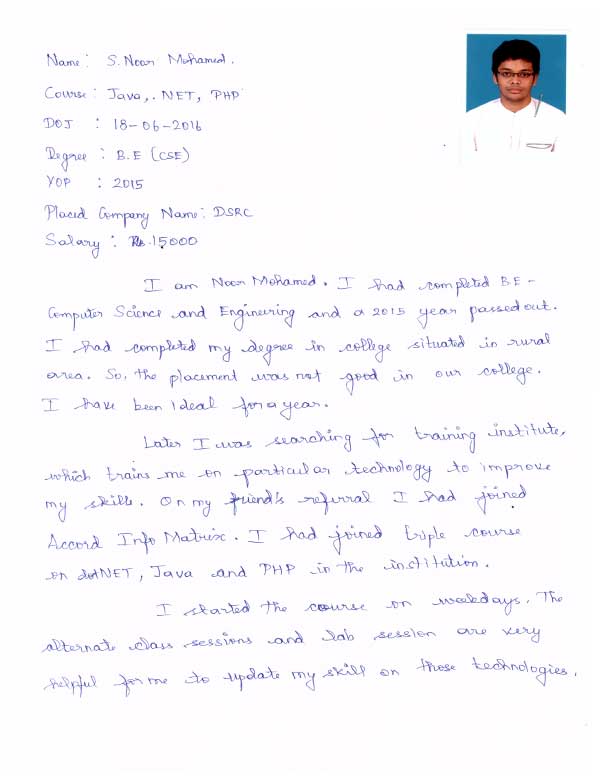 Name : S. Noor Mohamed.
Course : Java, .NET, PHP
DOJ : 18-06-2016
Degree : B.E (CSE)
YOP : 2015
Placed Company Name : DSRC
Salary : Rs. 15000
I am Noor Mohamed. I had completed BE -
Computer Science and Engineering and a 2015 year passed out.
I had completed my degree in college situated in rural
area. So, the placement was not good in our college.
I have been ideal for a year.
Later I was searching for training institute,
which trains me on particular technology to improve
my skills. On my friend's referral I had joined
Accord Info Matrix. I had joined triple course
on dotNET, Java and PHP in the institution.
I started the course on weekdays. The
alternate class sessions and lab session are very
helpful for me to update my skill on those technologies.